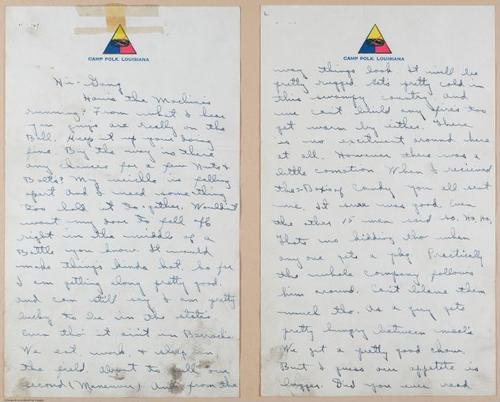 CAMP POLK, LOUISIANA
Hi - Gang
Hows the Machines
running? From what I hear
you guys are really on the
Ball. Keep it up your doing
fine. By the way is there
any chance for a few Nuts &
Bolts? My vehicle is falling
apart and I need something
too hold it together. Wouldn't
want my door to fall off
right in the middle of a
Battle you know. It would
make things kinda hot. So far
I am getting along pretty good.
and can still say I am pretty
lucky to be in the states
Even tho it ain't in Barracks.
We eat, work, & sleep in
the field. About to pull our
second (Maneuver) and from the
CAMP POLK, LOUISIANA
way things look. It will be
pretty rugged. Gets pretty cold in
this swampy country and
we can't build any fires too
get warm by either. There
is no excitement around here
at all. However there was a
little comotion. When I received
the Candy you all sent
me. It sure was good. Even
the other 15 men said so. Ha. Ha.
Thats no kidding tho when
any one gets a pkg Practically
the whole company follows
him around. Can't blame them
much tho. As a guy gets
pretty hungry between meals
We get a pretty good chow.
But I guess our appetite is
bigger. Did you ever read